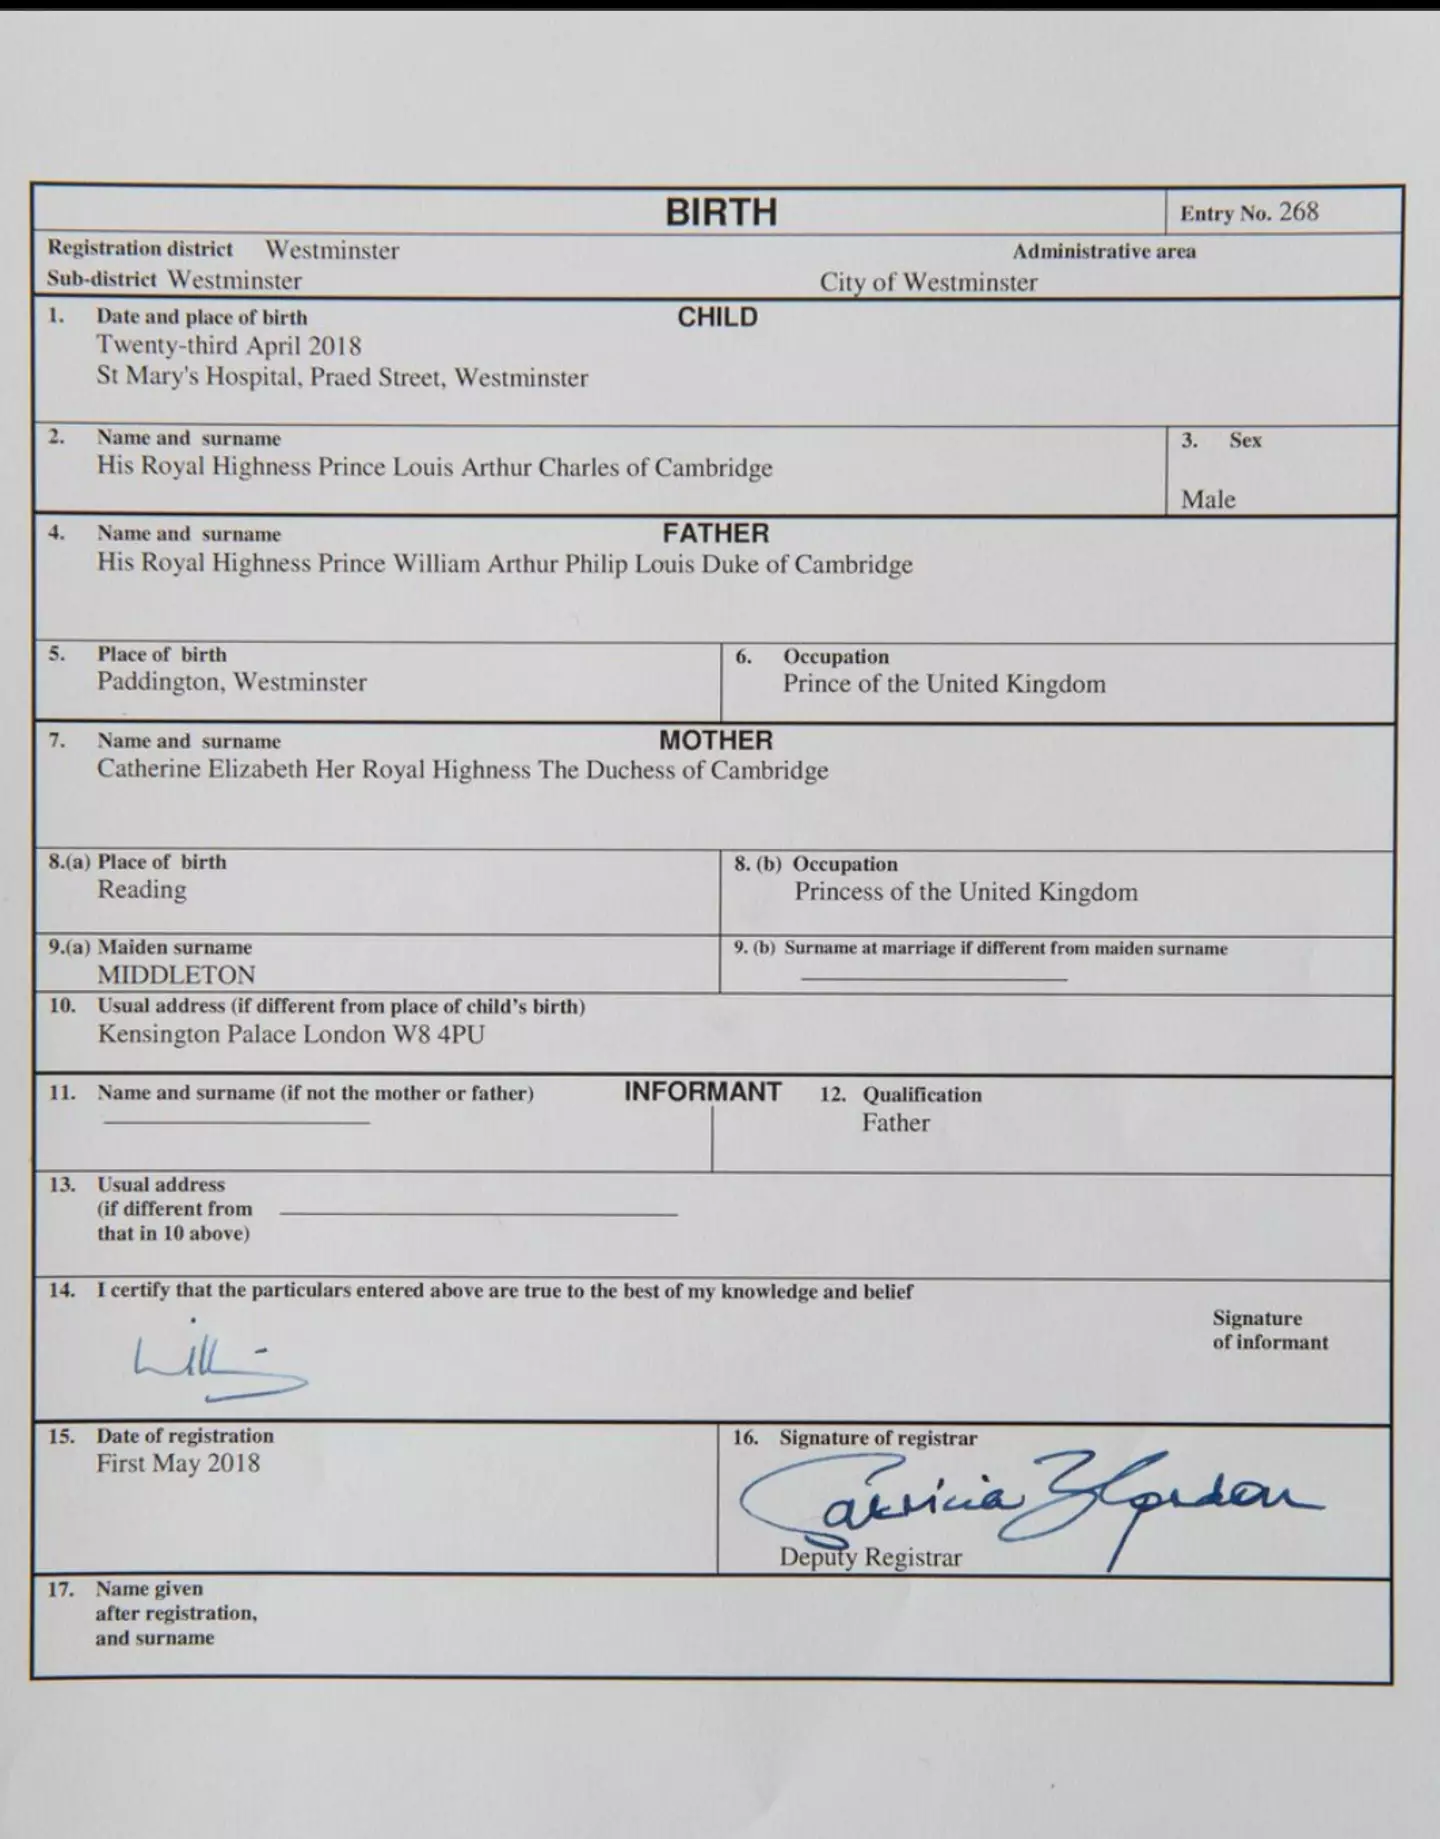 BIRTH
Entry No. 268
Registration district Westminster
Administrative area
Sub-district Westminster
City of Westminster
1. Date and place of birth
CHILD
Twenty-third April 2018
St Mary's Hospital, Praed Street, Westminster
2. Name and surname
3. Sex
His Royal Highness Prince Louis Arthur Charles of Cambridge
Male
4. Name and surname
FATHER
His Royal Highness Prince William Arthur Philip Louis Duke of Cambridge
5. Place of birth
6. Occupation
Paddington, Westminster
Prince of the United Kingdom
7. Name and surname
MOTHER
Catherine Elizabeth Her Royal Highness The Duchess of Cambridge
8.(a) Place of birth
8. (b) Occupation
Reading
Princess of the United Kingdom
9.(a) Maiden surname
9. (b) Surname at marriage if different from maiden surname
MIDDLETON
10. Usual address (if different from place of child's birth)
Kensington Palace London W8 4PU
11. Name and surname (if not the mother or father)
INFORMANT
12. Qualification
Father
13. Usual address
(if different from
that in 10 above)
14. I certify that the particulars entered above are true to the best of my knowledge and belief
Signature
of informant
15. Date of registration
16. Signature of registrar
First May 2018
Patricia
Gordon
Deputy Registrar
17. Name given
after registration,
and surname